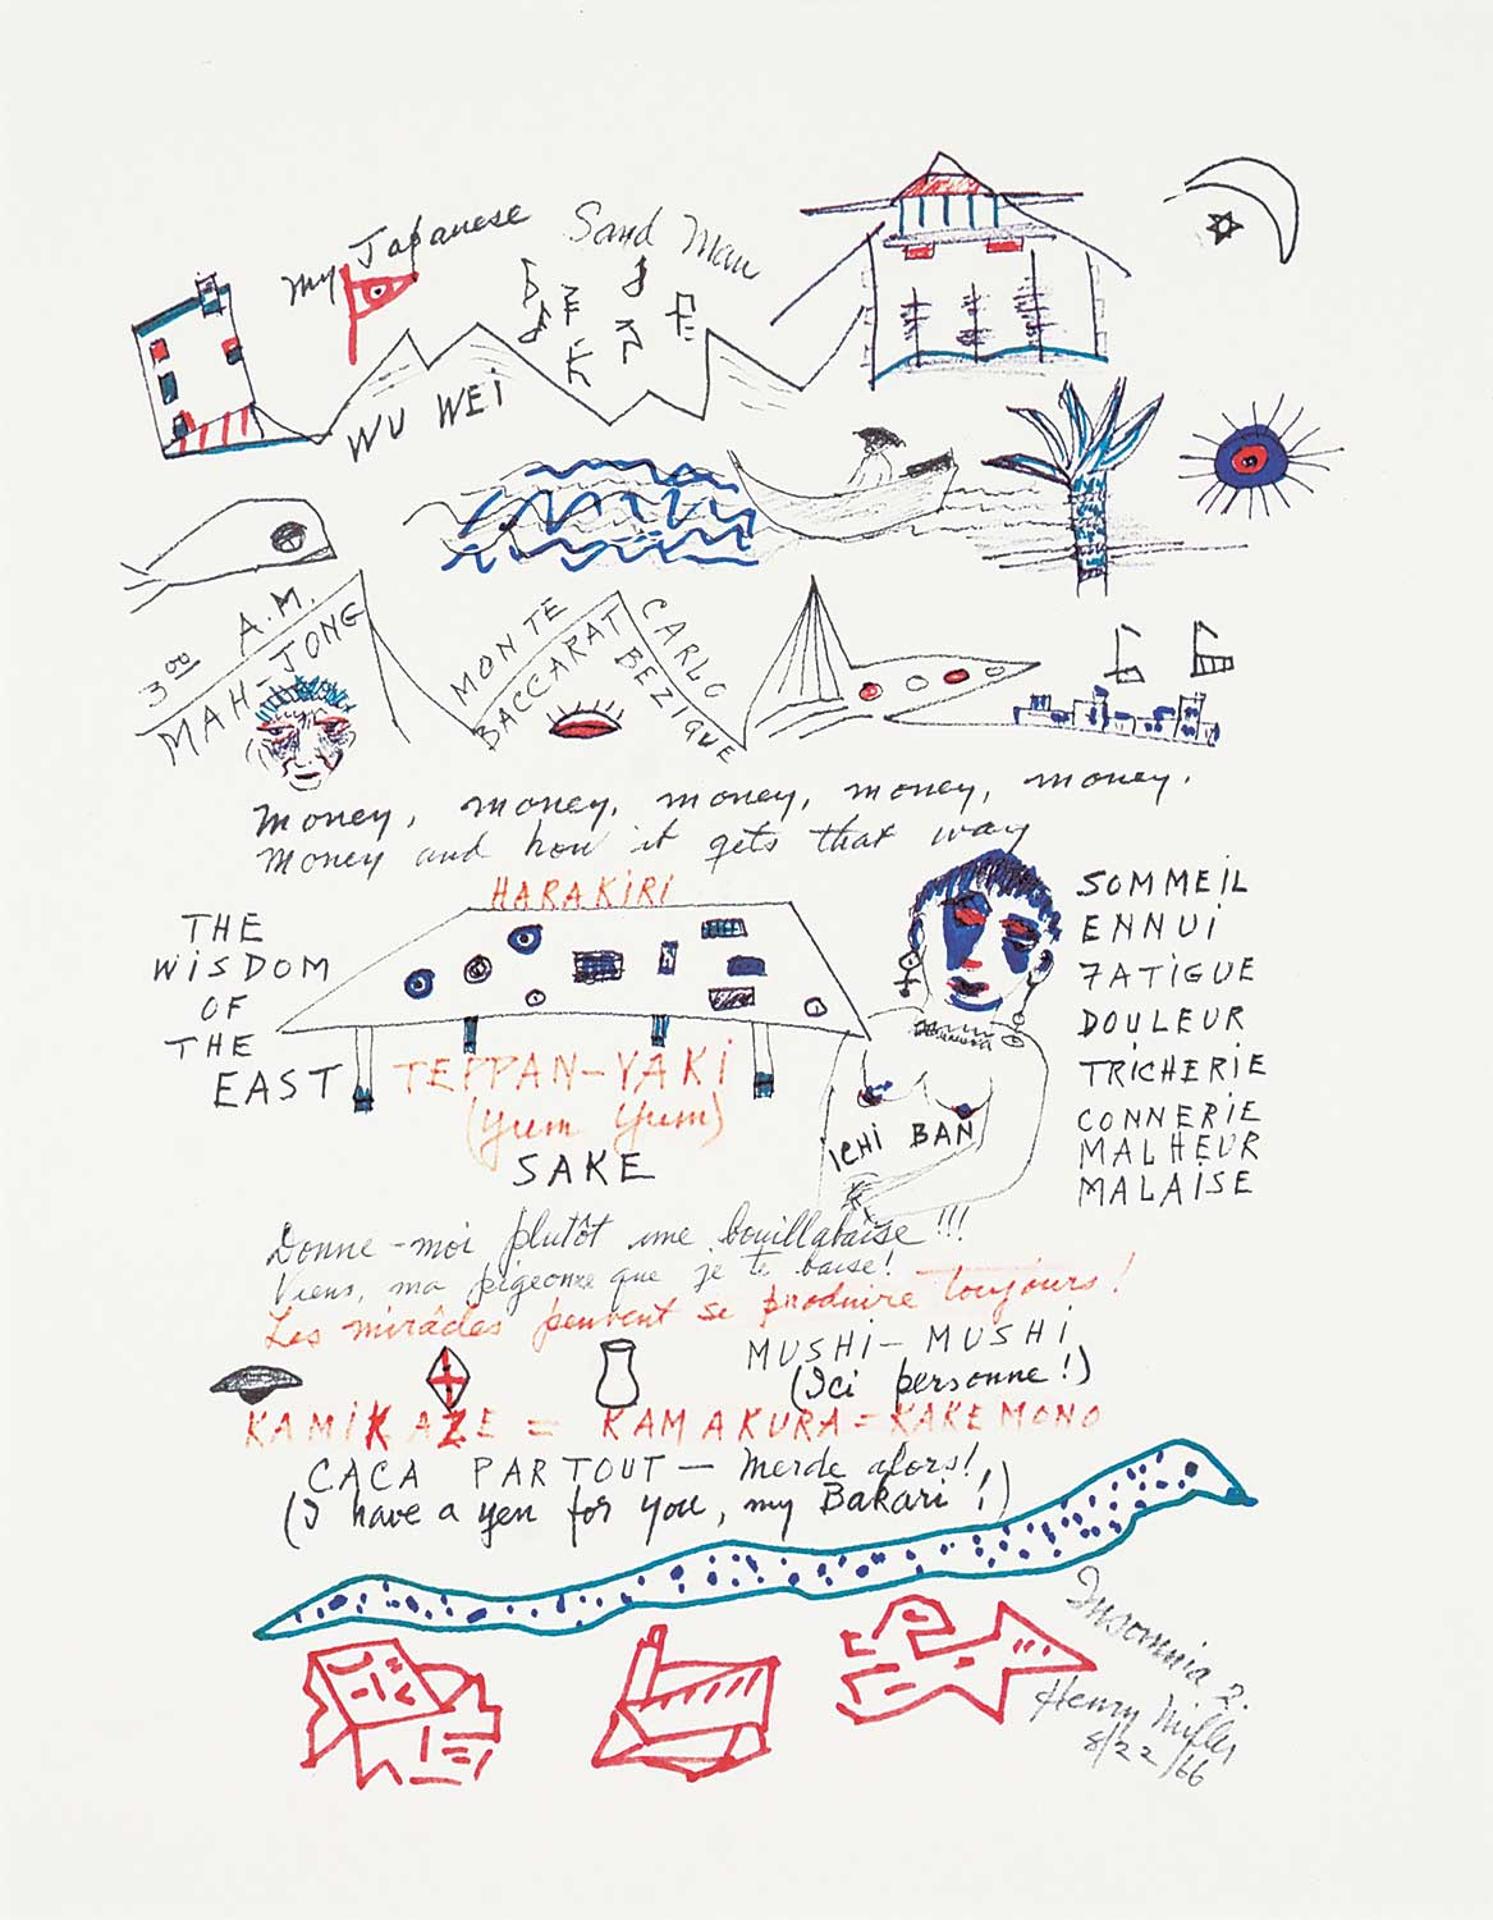 my Japanese Sand Man
WU WEi
3 00 A.M.
MAH-JONG
MONTE
CARLO
BACCARAT
BEZIQUE
money, money, money, money, money.
money and how it gets that way
HARAKiRi
THE
WiSDOM
OF
THE
EAST
TEPPAN-YAKi
(Yum Yum)
SAKE
iCHi BAN
SOMMEiL
ENNUi
FATiGUE
DOULEUR
TRiCHERiE
CONNERiE
MALHEUR
MALAiSE
Donne-moi plutôt une bouillabaise!!!
Viens, ma pigeonne que je te baise!
Les mirâcles peuvent se produire toujours!
MUSHi-MUSHi
(Ici personne!)
KAMiKAZE = KAMAKURA = KAKEMONO
CACA PARTOUT — Merde alors!
(I have a yen for you, my Bakari!)
Insomnia 2.
Henry Miller
8/22/66